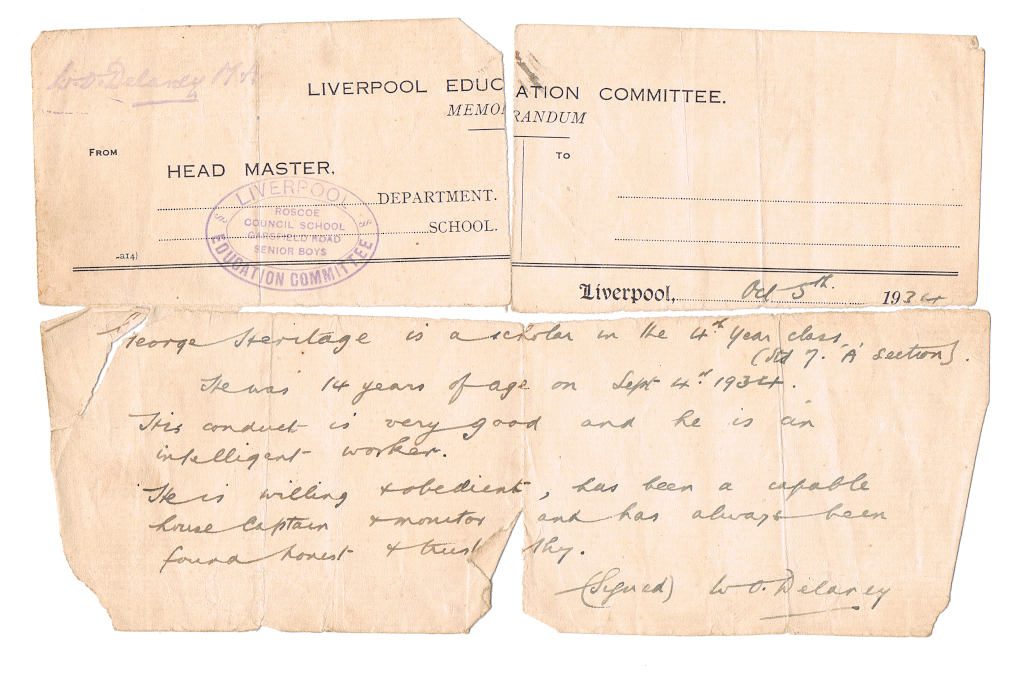 W O. Delaney M.A
LIVERPOOL EDUCATION COMMITTEE.
MEMORANDUM
FROM
HEAD MASTER,
DEPARTMENT.
SCHOOL.
LIVERPOOL
ROSCOE
COUNCIL SCHOOL
GARSFIELD ROAD
SENIOR BOYS
EDUCATION COMMITTEE
TO
Liverpool, Oct 5th. 1934
George Heritage is a scholar in the 4th Year class
(Std 7. 'A' section).
He was 14 years of age on Sept 4th 1934.
His conduct is very good and he is an
intelligent worker.
He is willing & obedient, has been a capable
house Captain & monitor and has always been
found honest & trust thy.
(Signed) W O. Delaney